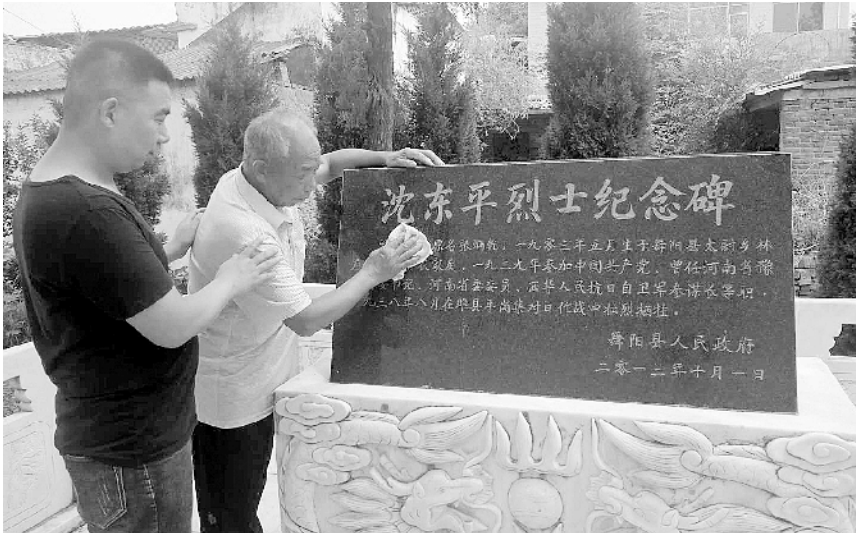 沈东平烈士纪念碑
原名张，一九零三年五月生于舞阳县太尉乡林
家庭，一九二九年参加中国共产党，曾任河南省豫
书记、河南省委委员、西华人民抗日自卫军参谋长等职，
九三八年八月在睢县平岗集对日作战中壮烈牺牲。
舞阳县人民政府
二零一二年十月一日